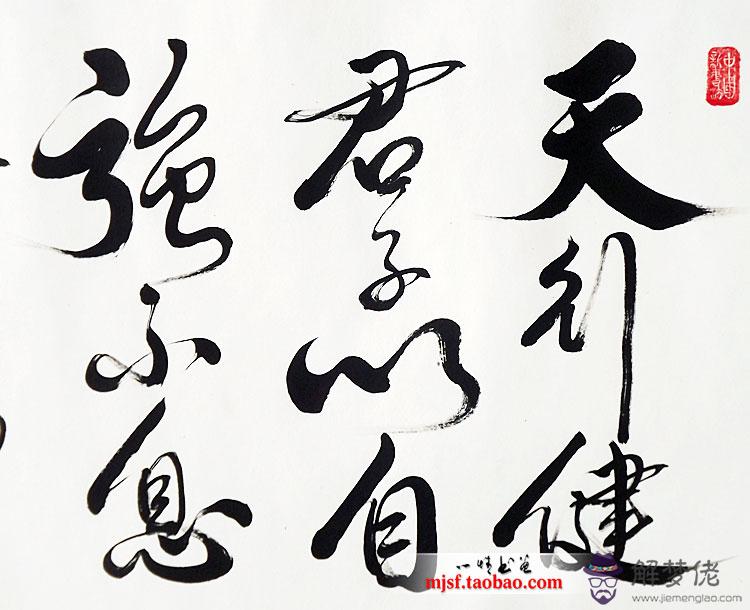 天行健
君子以自
強不息
mjsf.taobao.com
解梦佬
www.jiemenglao.com